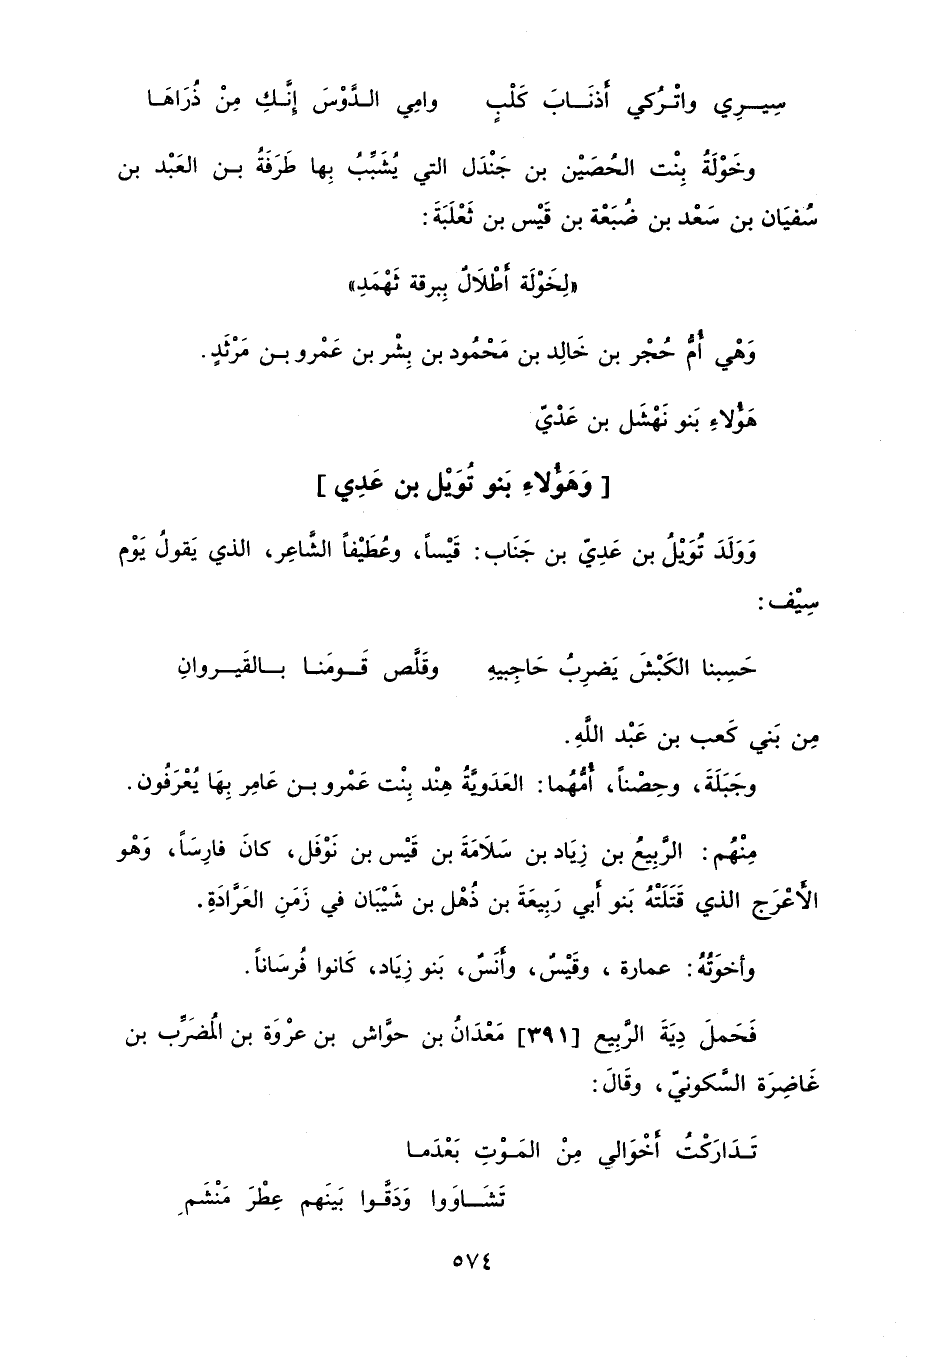 سِيــرِي واتْـرُكي أَذنَــابَ كَلْبٍ    وامِي الـدَّوْسَ إنَّـكِ مِنْ ذُرَاهَـا
وخَوْلَةُ بِنْت الحُصَيْن بن جَنْدَل التي يُشَبِّبُ بِها طَرَفَةُ بـن العَبْد بن
سُفيَان بن سَعْد بن ضُبَعْة بن قَيْس بن ثَعْلَبَةَ:
«لِخَوْلَة أَطْلَالٌ بِبرقة ثَهْمَدِ»
وَهْي أُمُّ حُجْر بن خَالِد بن مَحْمُود بن بِشْر بن عَمْرو بـن مَرْثَدٍ.
هَؤُلاءِ بَنو نَهْشَل بن عَدْيّ
[ وَهَؤُلاءِ بَنو تُوَيْل بن عَدِي ]
وَوَلَدَ تُوَيْلُ بن عَدِيّ بن جَنَاب: قَيْساً، وعُطَيْفاً الشَّاعِر، الذي يَقولُ يَوْم
سِيْف:
حَسِبنا الكَبْشَ يَضرِبُ حَاجِبيهِ    وقَلَّص قَـومَنـا بـالقَيـروانِ
مِن بَني كَعب بن عَبْد اللَّهِ.
وجَبَلَةَ، وحِصْناً، أُمُّهُما: العَدَويَّةُ هِنْد بِنْت عَمْرو بـن عَامِر بِهَا يُعْرَفُون.
مِنْهُم: الرَّبِيعُ بن زِيَاد بن سَلَامَةَ بن قَيْس بن نَوْفَل، كانَ فارِسَاً، وَهْو
الأَعْرَج الذي قَتَلَتْهُ بَنو أَبي رَبِيعَةَ بن ذُهْل بن شَيْبَان في زَمَنِ العَرَّادَةِ.
وأخوَتُهُ: عمارة ، وقَيْسٌ، وأَنَسٌ، بَنو زِيَاد، كَانوا فُرسَاناً.
فَحَملَ دِيَةَ الرَّبِيع [٣٩١] مَعْدَانُ بن حوَّاش بن عرْوَة بن المُضَرِّب بن
غَاضِرَة السَّكونيّ، وقَالَ:
تَـدَارَكْتُ أَخْوَالي مِنْ المَـوْتِ بَعْدَمـا
تَشَــاوَوا وَدَقَّـوا بَينَهم عِطْرَ مَنْشَمِ
٥٧٤